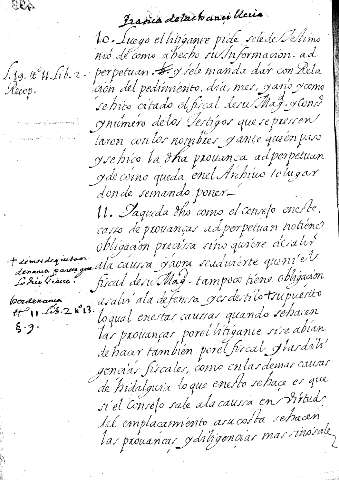 Pratica de la chancilleria
10. Luego el litigante pide se le de Testimo
nio de como a hecho su Informacion ad
perpetuan y se le manda dar con Rela
cion del pedimiento, dia, mes, y año, y como
se hiço citado el fiscal de su Magd. y Conss
y numero de los Testigos que se presen
taron con los nombres, y ante quien paso
y se hiço la dha provança ad perpetuan
y de como queda en el Archivo o lugar
donde se mando poner.
S. 19. tt. 11. Lib. 2.
Recop.
11. Ia queda dho como el consejo en este
casso de provanças ad perpetuan no tiene
obligacion precisa sino quiere de salir
a la caussa y aora se advierte que ni el
fiscal de su Magd. tampoco tiene obligacion
a salir a la defensa, y es de stilo + supuesto
lo qual en estas caussas quando se hacen
las provanças por el litigante si se avian
de hacer tambien por el fiscal, y las dili
gencias fiscales, como en las demas causas
de hidalguia lo que en esto se haçe es que
si el Consejo sale a la caussa en virtud
del emplaçamiento a su costa se hacen
las provanças, y diligencias mas sino sale
ordenanca
tt. 11 Lib. 2 n. 13.
§. 9.